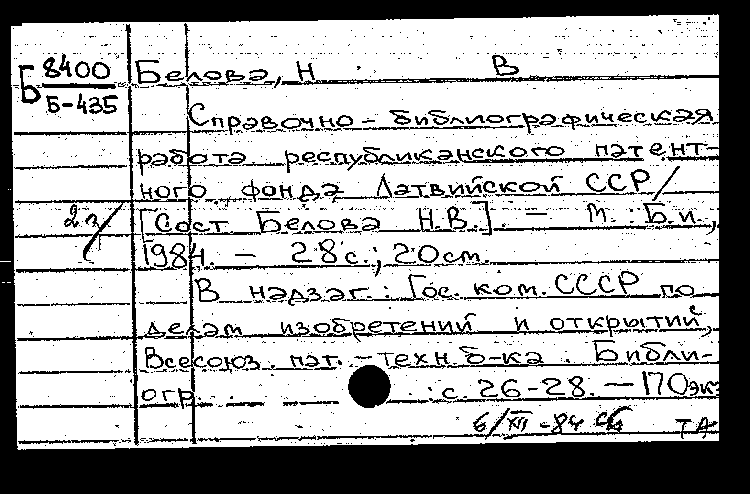 Б 8400 Белова, Н В
Б-435
Справочно-библиографическая
работа республиканского патент-
ного фонда Латвийской ССР/
2э/ [Сост Белова Н.В.]. – М.: Б.и.,
1984. – 28с.; 20см.
В надзаг.: Гос. ком. СССР по
делам изобретений и открытий,
Всесоюз. пат.-техн. б-ка. Библи-
огр. с. 26-28. — 110экз
6/XII-84